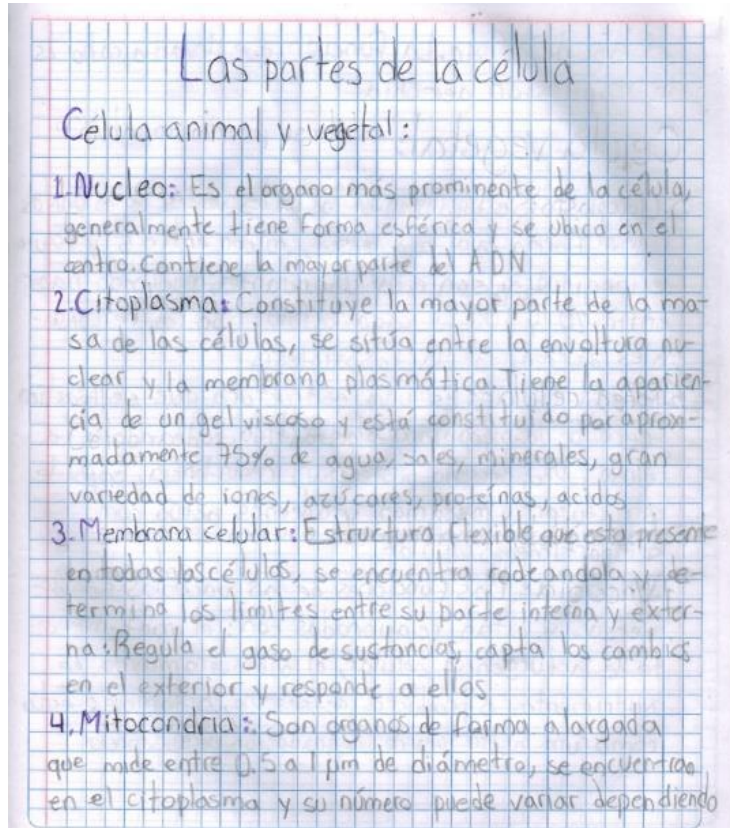 Las partes de la célula
Célula animal y vegetal:
1.Nucleo: Es el organo más prominente de la célula,
generalmente tiene forma esférica y se ubica en el
centro. Contiene la mayor parte del ADN
2.Citoplasma: Constituye la mayor parte de la ma-
sa de las células, se sitúa entre la envoltura nu-
clear y la membrana plasmática. Tiene la aparien-
cia de un gel viscoso y está constituido por aprox-
madamente 75% de agua, sales, minerales, gran
variedad de iones, azúcares, proteínas, acidos
3.Membrana celular: Estructura flexible que esta presente
en todas las células, se encuentra rodeandola y de-
termina los límites entre su parte interna y exter-
na. Regula el paso de sustancias, capta los cambios
en el exterior y responde a ellos
4.Mitocondria: Son organos de forma alargada
que mide entre 0.5 a 1 µm de diámetro, se encuentran
en el citoplasma y su número puede variar dependiendo